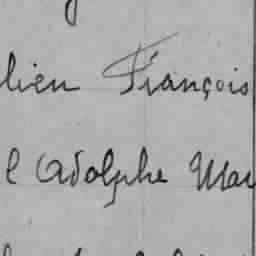 lien François
l Adolphe Mar